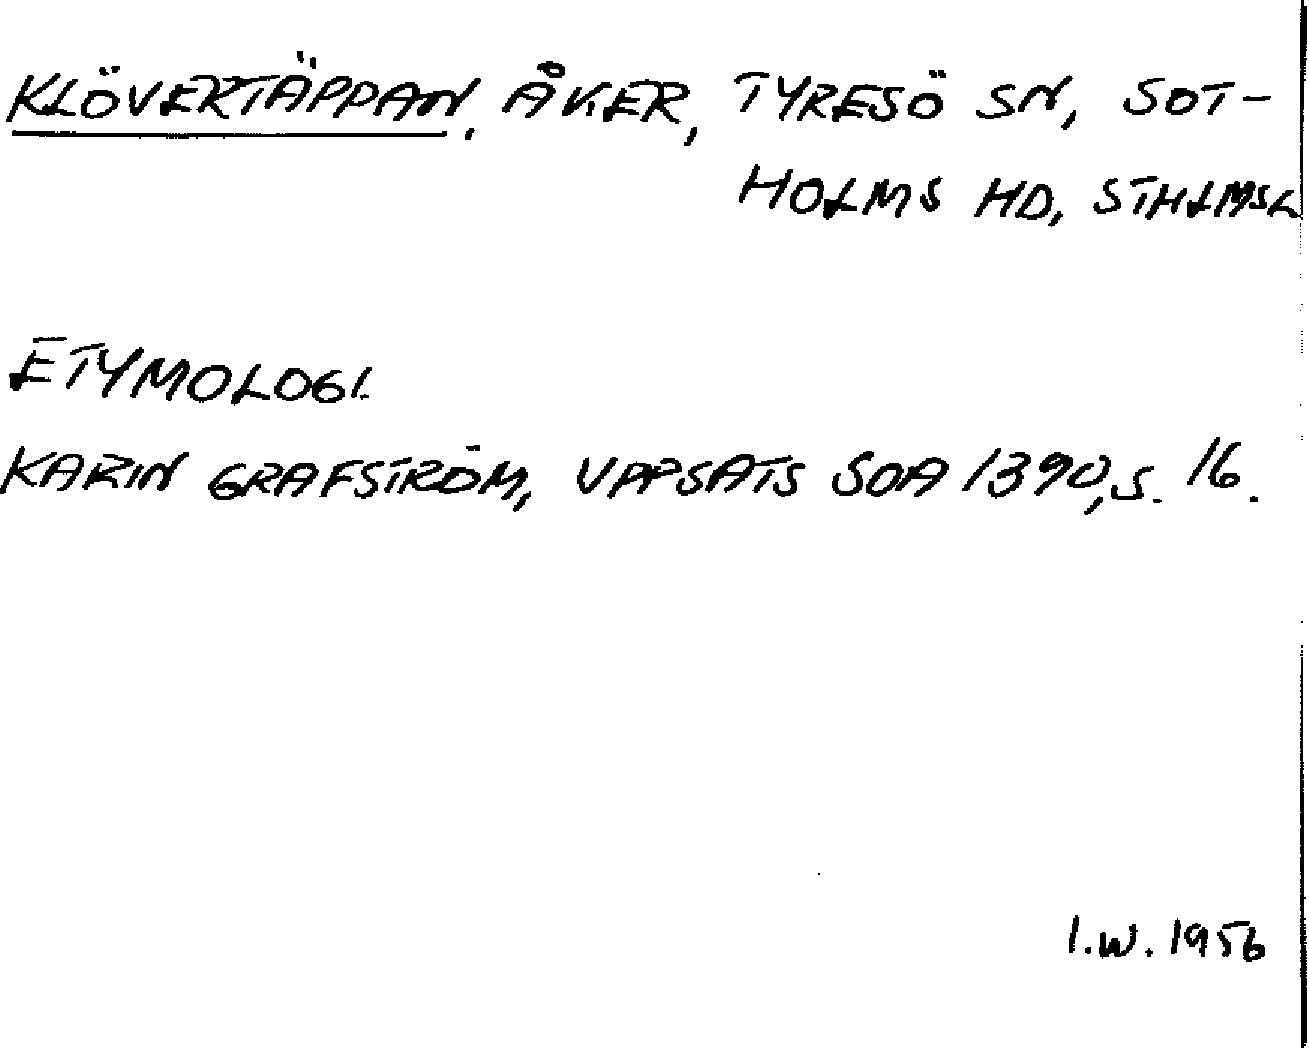 KLÖVERTÄPPAN, ÅKER, TYRESÖ SN, SOT-
HOLMS HD, STHLMSL
ETYMOLOGI.
KARIN GRAFSTRÖM, UPPSATS SOA 1390, S. 16.
I.W. 1956